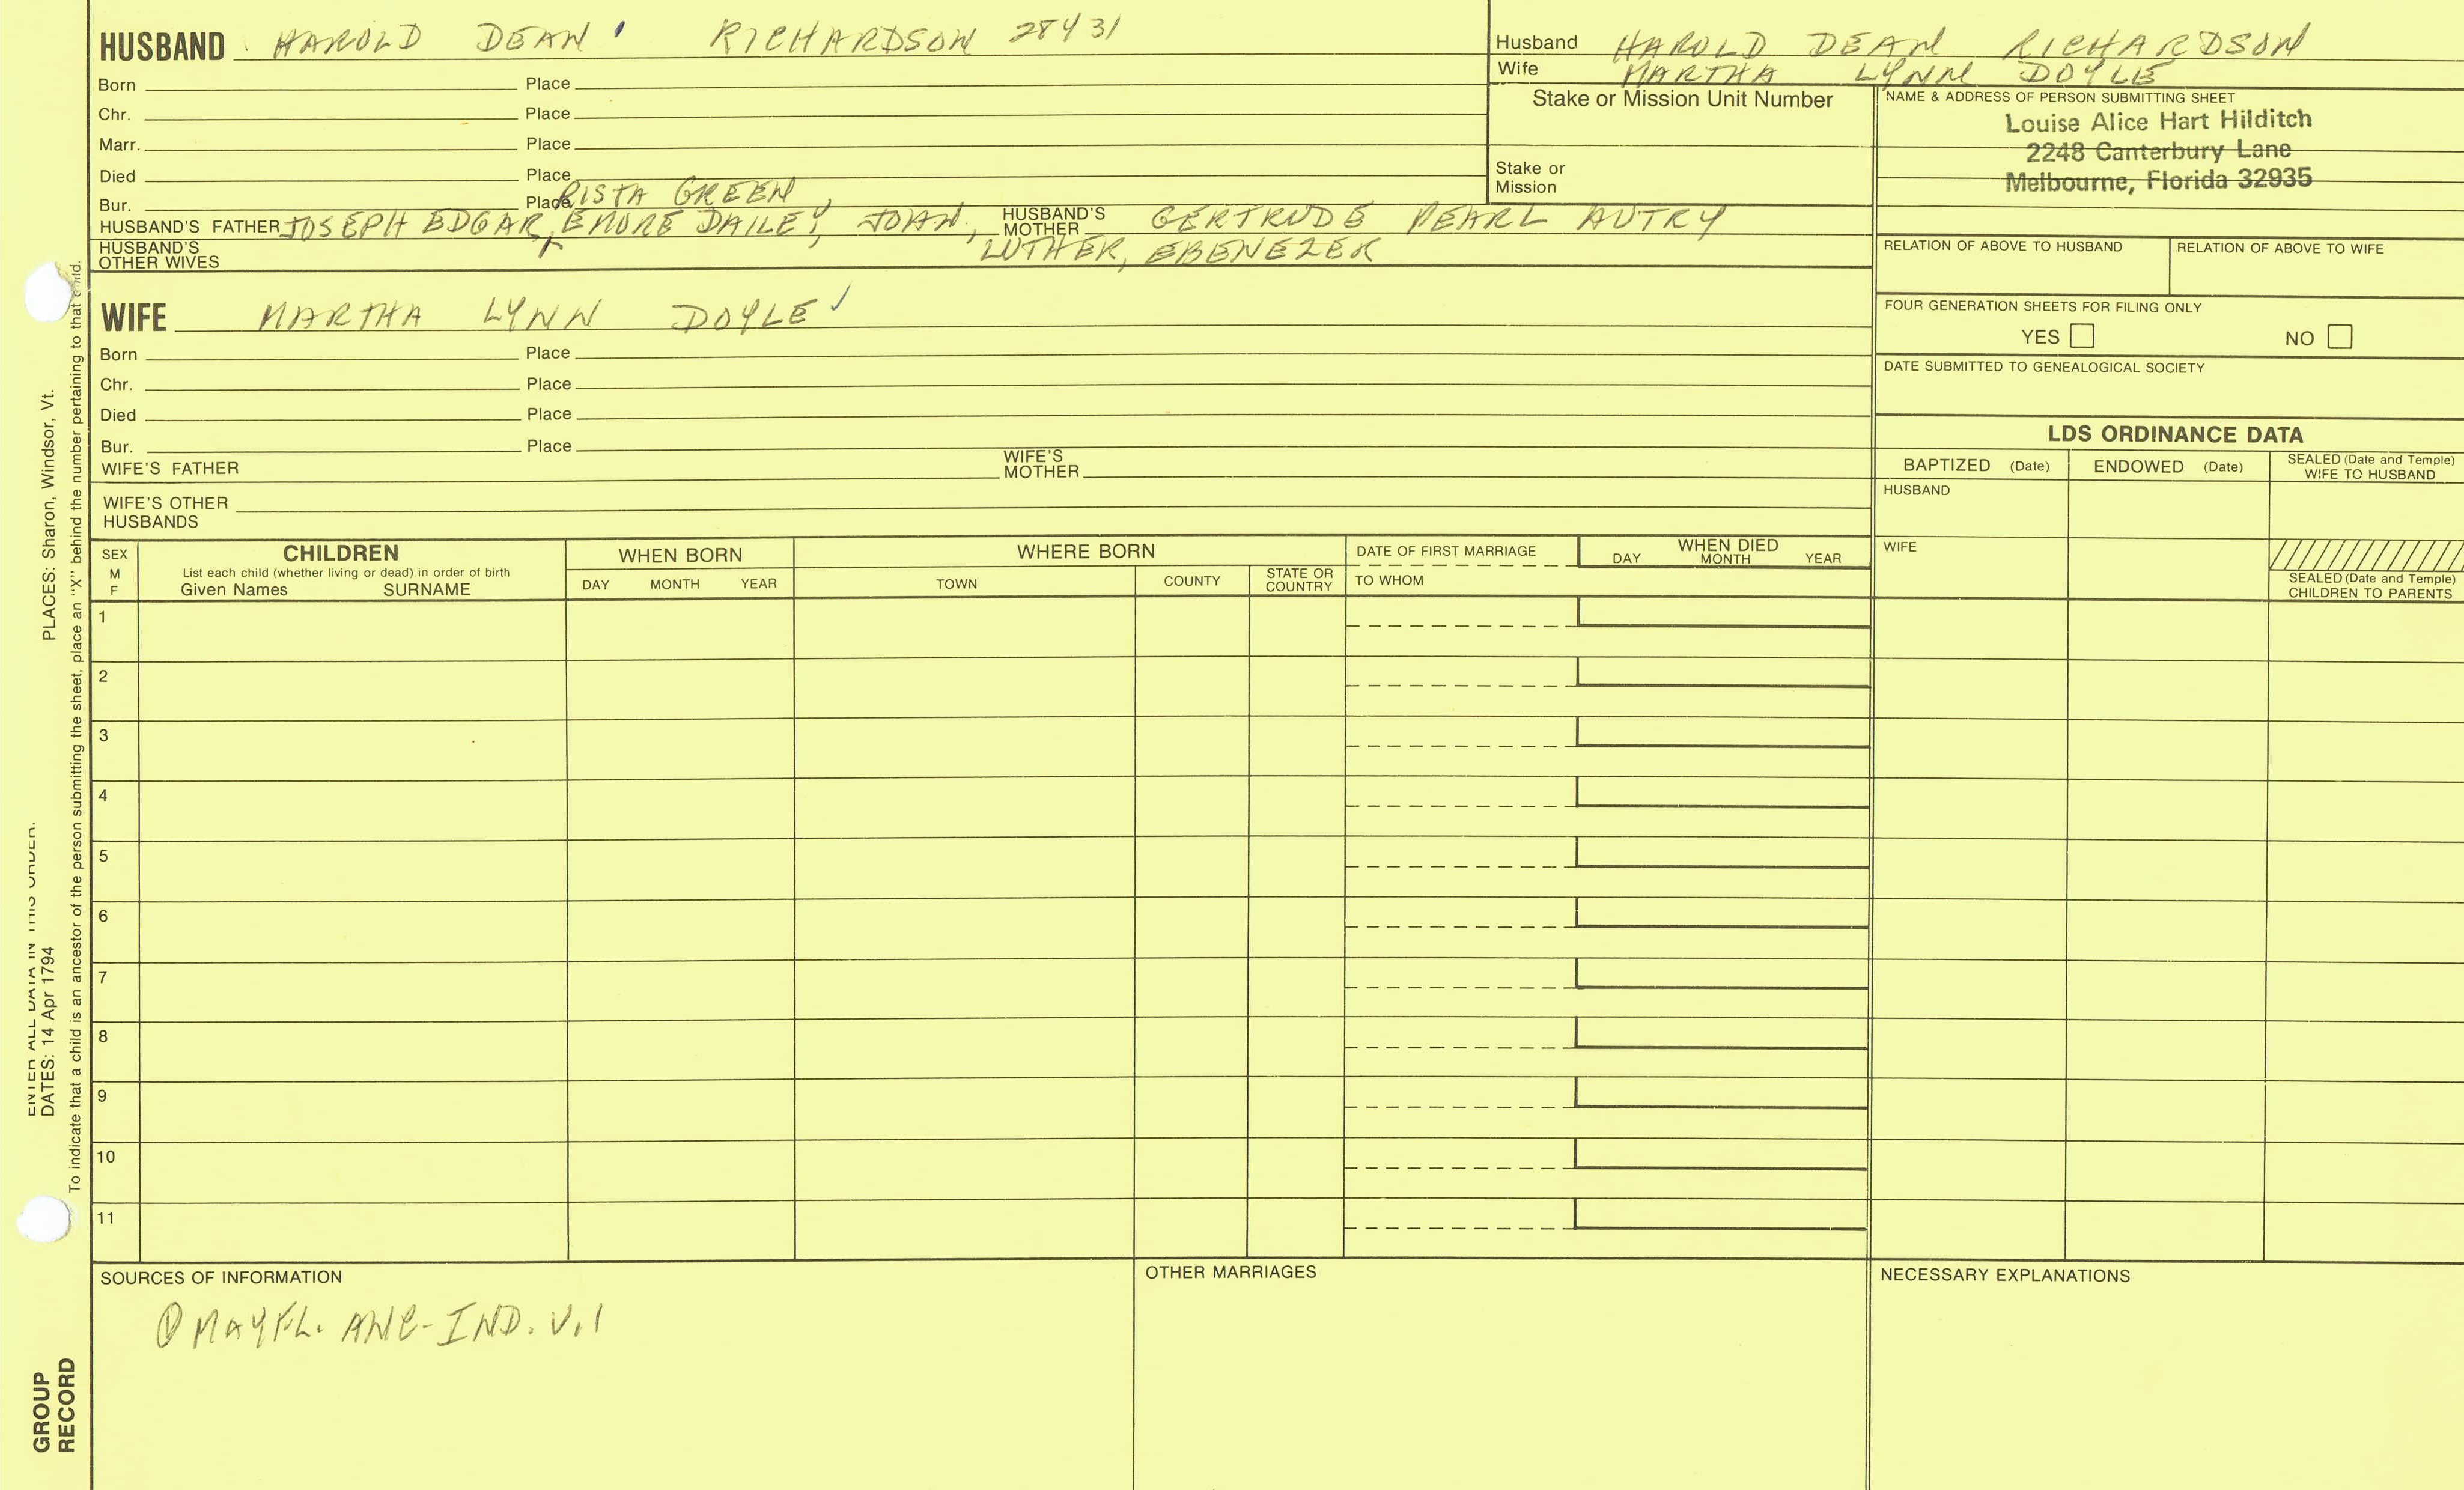 HUSBAND HAROLD DEAN RICHARDSON 28431
Born Place
Chr. Place
Marr. Place
Died Place
RISTA GREEN
Bur. Place
HUSBAND'S FATHER JOSEPH EDGAR, EMORE DAILEY, JOHN, HUSBAND'S MOTHER GERTRUDE PEARL AUTRY
LUTHER, EBENEZER
HUSBAND'S OTHER WIVES
WIFE MARTHA LYNN DOYLE
Born Place
Chr. Place
Died Place
Bur. Place
WIFE'S FATHER WIFE'S MOTHER
WIFE'S OTHER HUSBANDS
Husband HAROLD DEAN RICHARDSON
Wife MARTHA LYNN DOYLE
Stake or Mission Unit Number
Stake or Mission
NAME & ADDRESS OF PERSON SUBMITTING SHEET
Louise Alice Hart Hilditch
2248 Canterbury Lane
Melbourne, Florida 32935
RELATION OF ABOVE TO HUSBAND RELATION OF ABOVE TO WIFE
FOUR GENERATION SHEETS FOR FILING ONLY
YES NO
DATE SUBMITTED TO GENEALOGICAL SOCIETY
LDS ORDINANCE DATA
BAPTIZED (Date) ENDOWED (Date) SEALED (Date and Temple) WIFE TO HUSBAND
HUSBAND
WIFE
SEALED (Date and Temple) CHILDREN TO PARENTS
SEX M F
CHILDREN
List each child (whether living or dead) in order of birth
Given Names SURNAME
WHEN BORN
DAY MONTH YEAR
WHERE BORN
TOWN COUNTY STATE OR COUNTRY
DATE OF FIRST MARRIAGE
TO WHOM
WHEN DIED
DAY MONTH YEAR
1
2
3
4
5
6
7
8
9
10
11
SOURCES OF INFORMATION
① MAYFL. ANC-IND. V.1
OTHER MARRIAGES
NECESSARY EXPLANATIONS
ENTER ALL DATA IN THIS ORDER.
DATES: 14 Apr 1794 PLACES: Sharon, Windsor, Vt.
To indicate that a child is an ancestor of the person submitting the sheet, place an "X" behind the number pertaining to that child.
GROUP
RECORD